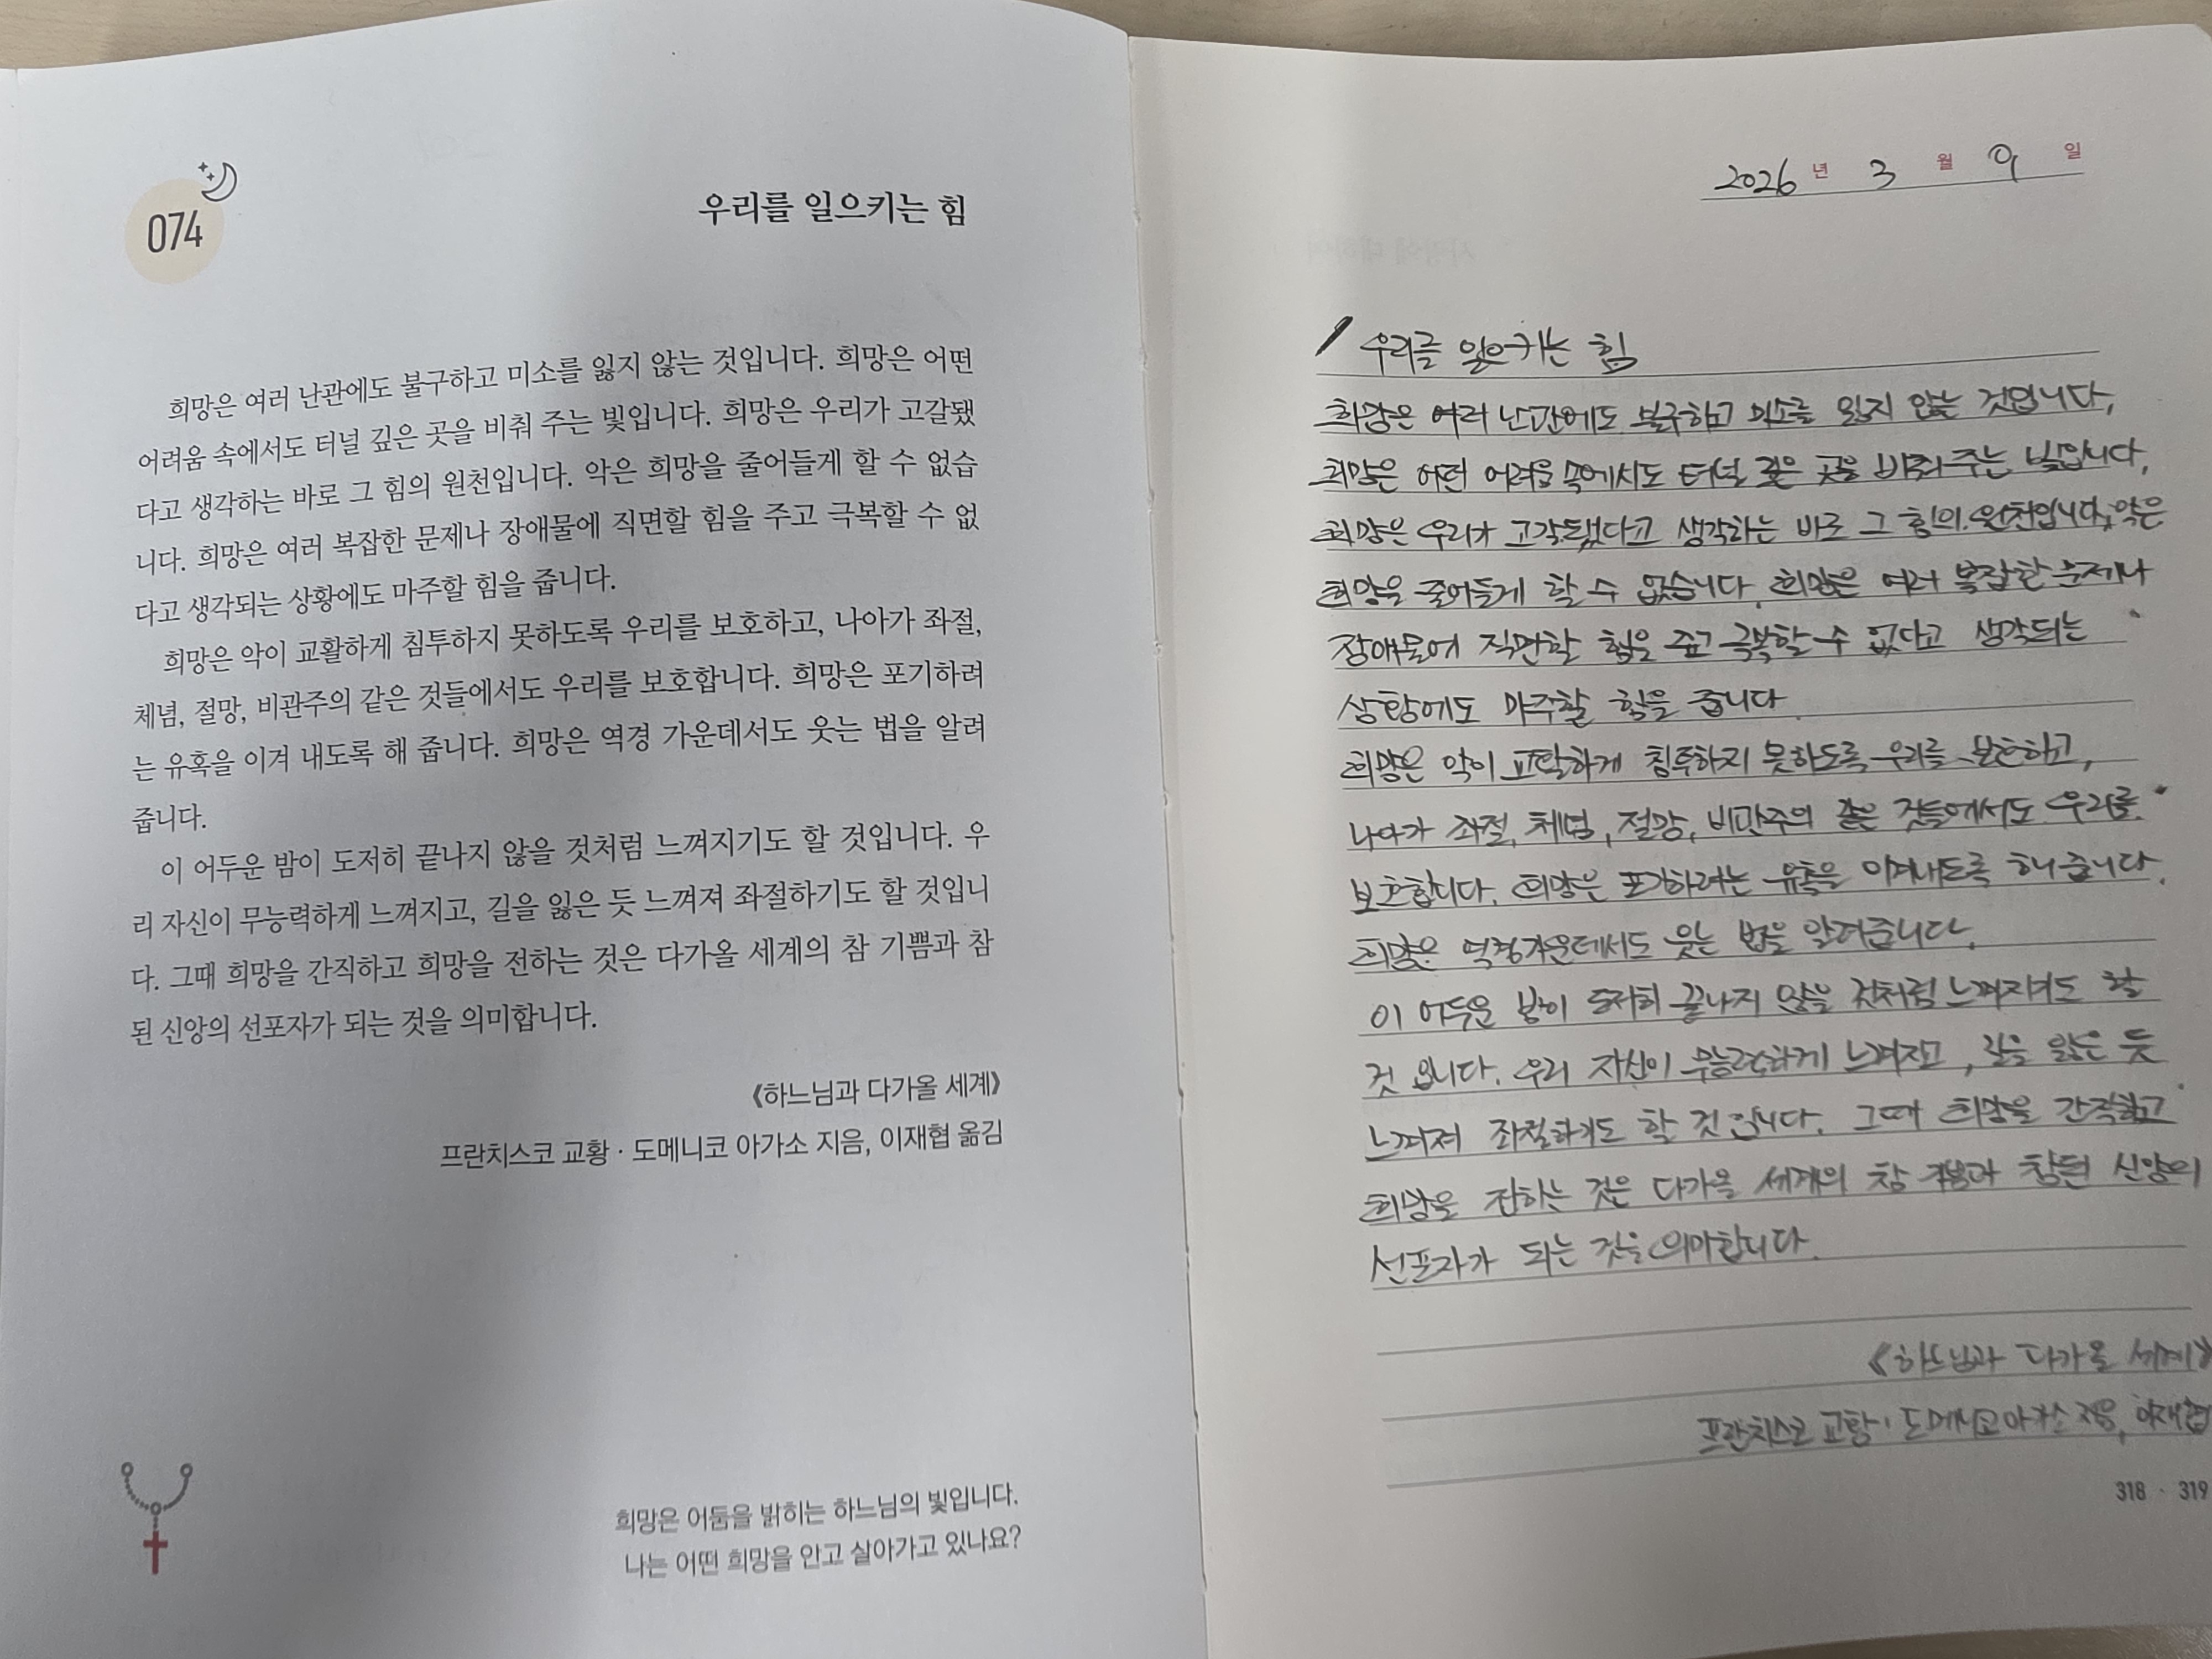 074
우리를 일으키는 힘
희망은 여러 난관에도 불구하고 미소를 잃지 않는 것입니다. 희망은 어떤
어려움 속에서도 터널 깊은 곳을 비춰 주는 빛입니다. 희망은 우리가 고갈됐
다고 생각하는 바로 그 힘의 원천입니다. 악은 희망을 줄어들게 할 수 없습
니다. 희망은 여러 복잡한 문제나 장애물에 직면할 힘을 주고 극복할 수 없
다고 생각되는 상황에도 마주할 힘을 줍니다.
희망은 악이 교활하게 침투하지 못하도록 우리를 보호하고, 나아가 좌절,
체념, 절망, 비관주의 같은 것들에서도 우리를 보호합니다. 희망은 포기하려
는 유혹을 이겨 내도록 해 줍니다. 희망은 역경 가운데서도 웃는 법을 알려
줍니다.
이 어두운 밤이 도저히 끝나지 않을 것처럼 느껴지기도 할 것입니다. 우
리 자신이 무능력하게 느껴지고, 길을 잃은 듯 느껴져 좌절하기도 할 것입니
다. 그때 희망을 간직하고 희망을 전하는 것은 다가올 세계의 참 기쁨과 참
된 신앙의 선포자가 되는 것을 의미합니다.
《하느님과 다가올 세계》
프란치스코 교황 · 도메니코 아가소 지음, 이재협 옮김
희망은 어둠을 밝히는 하느님의 빛입니다.
나는 어떤 희망을 안고 살아가고 있나요?
2026 년 3 월 9 일
우리를 일으키는 힘
희망은 여러 난관에도 불구하고 미소를 잃지 않는 것입니다.
희망은 어떤 어려움 속에서도 터널 깊은 곳을 비춰 주는 빛입니다.
희망은 우리가 고갈됐다고 생각하는 바로 그 힘의 원천입니다. 악은
희망을 줄어들게 할 수 없습니다. 희망은 여러 복잡한 문제나
장애물에 직면할 힘을 주고 극복할 수 없다고 생각되는
상황에도 마주할 힘을 줍니다.
희망은 악이 교활하게 침투하지 못하도록 우리를 보호하고,
나아가 좌절, 체념, 절망, 비관주의 같은 것들에서도 우리를
보호합니다. 희망은 포기하려는 유혹을 이겨내도록 해 줍니다.
희망은 역경가운데서도 웃는 법을 알려줍니다.
이 어두운 밤이 도저히 끝나지 않을 것처럼 느껴지기도 할
것 입니다. 우리 자신이 무능력하게 느껴지고, 길을 잃은 듯
느껴져 좌절하기도 할 것 입니다. 그때 희망을 간직하고
희망을 전하는 것은 다가올 세계의 참 기쁨과 참된 신앙의
선포자가 되는 것을 의미합니다.
《하느님과 다가올 세계》
프란치스코 교황 · 도메니코 아가소 지음, 이재협
318 · 319